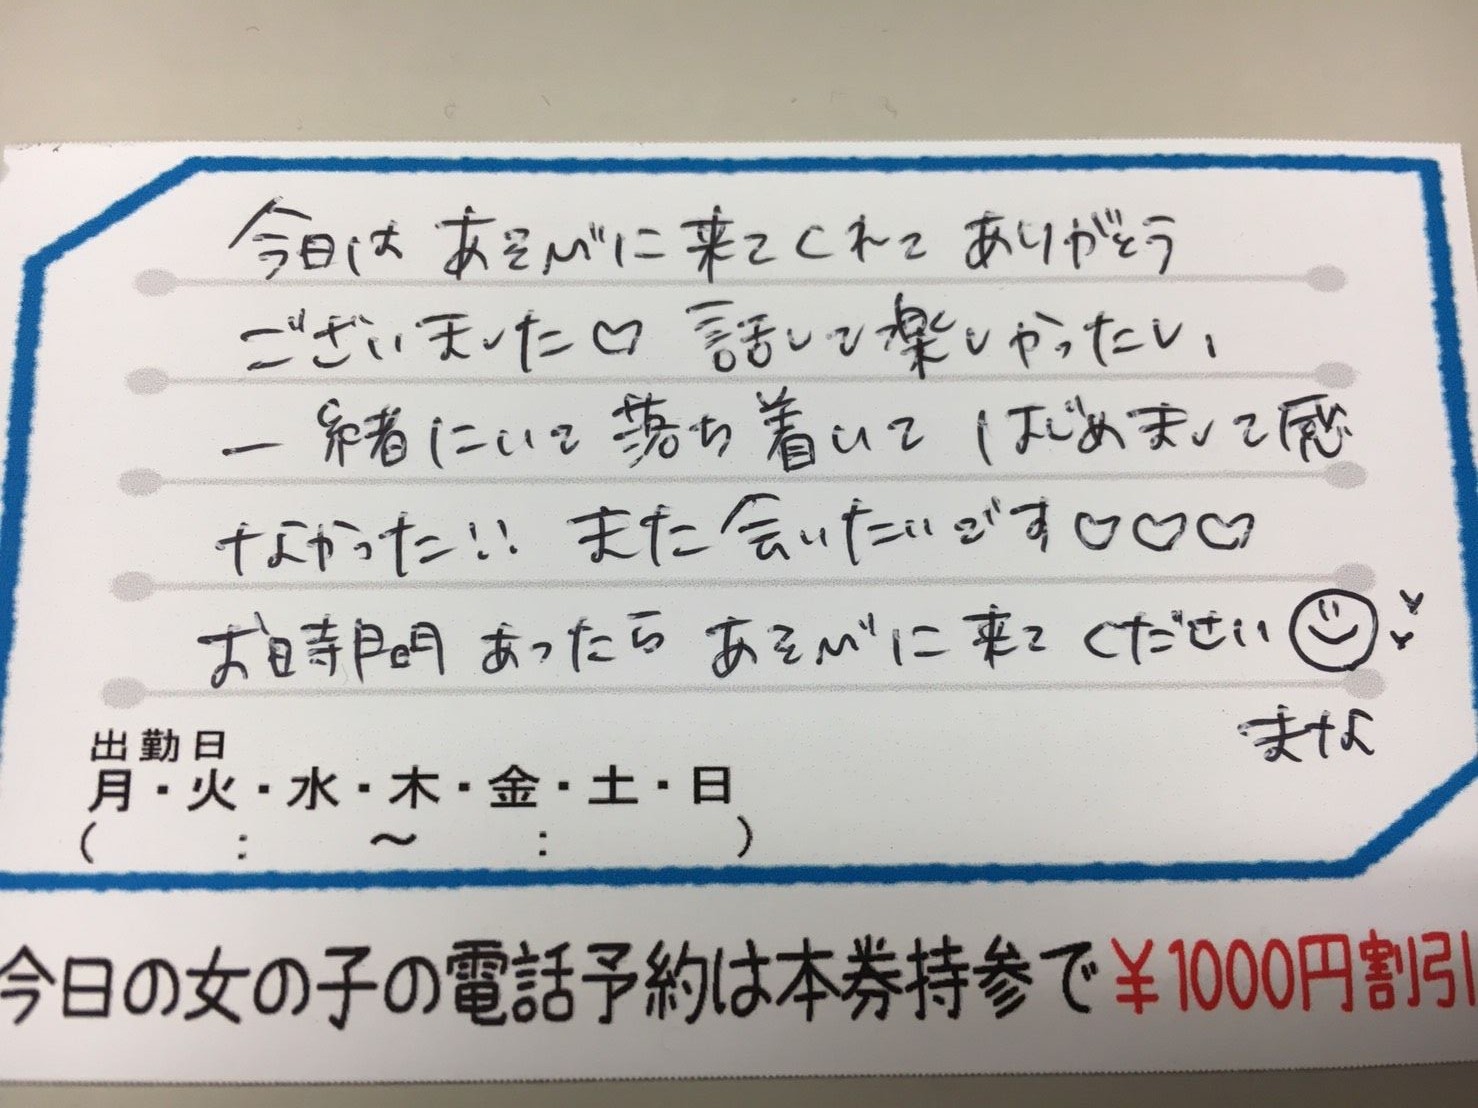 今日は あそびに来てくれて ありがとう
ございました♡ 話して楽しかったし、
一緒にいて落ち着いて はじめまして感
なかった!! また会いたいです♡♡♡
お時間あったら あそびに来てください
まな
出勤日
月・火・水・木・金・土・日
( : ～ : )
今日の女の子の電話予約は本券持参で¥1000円割引